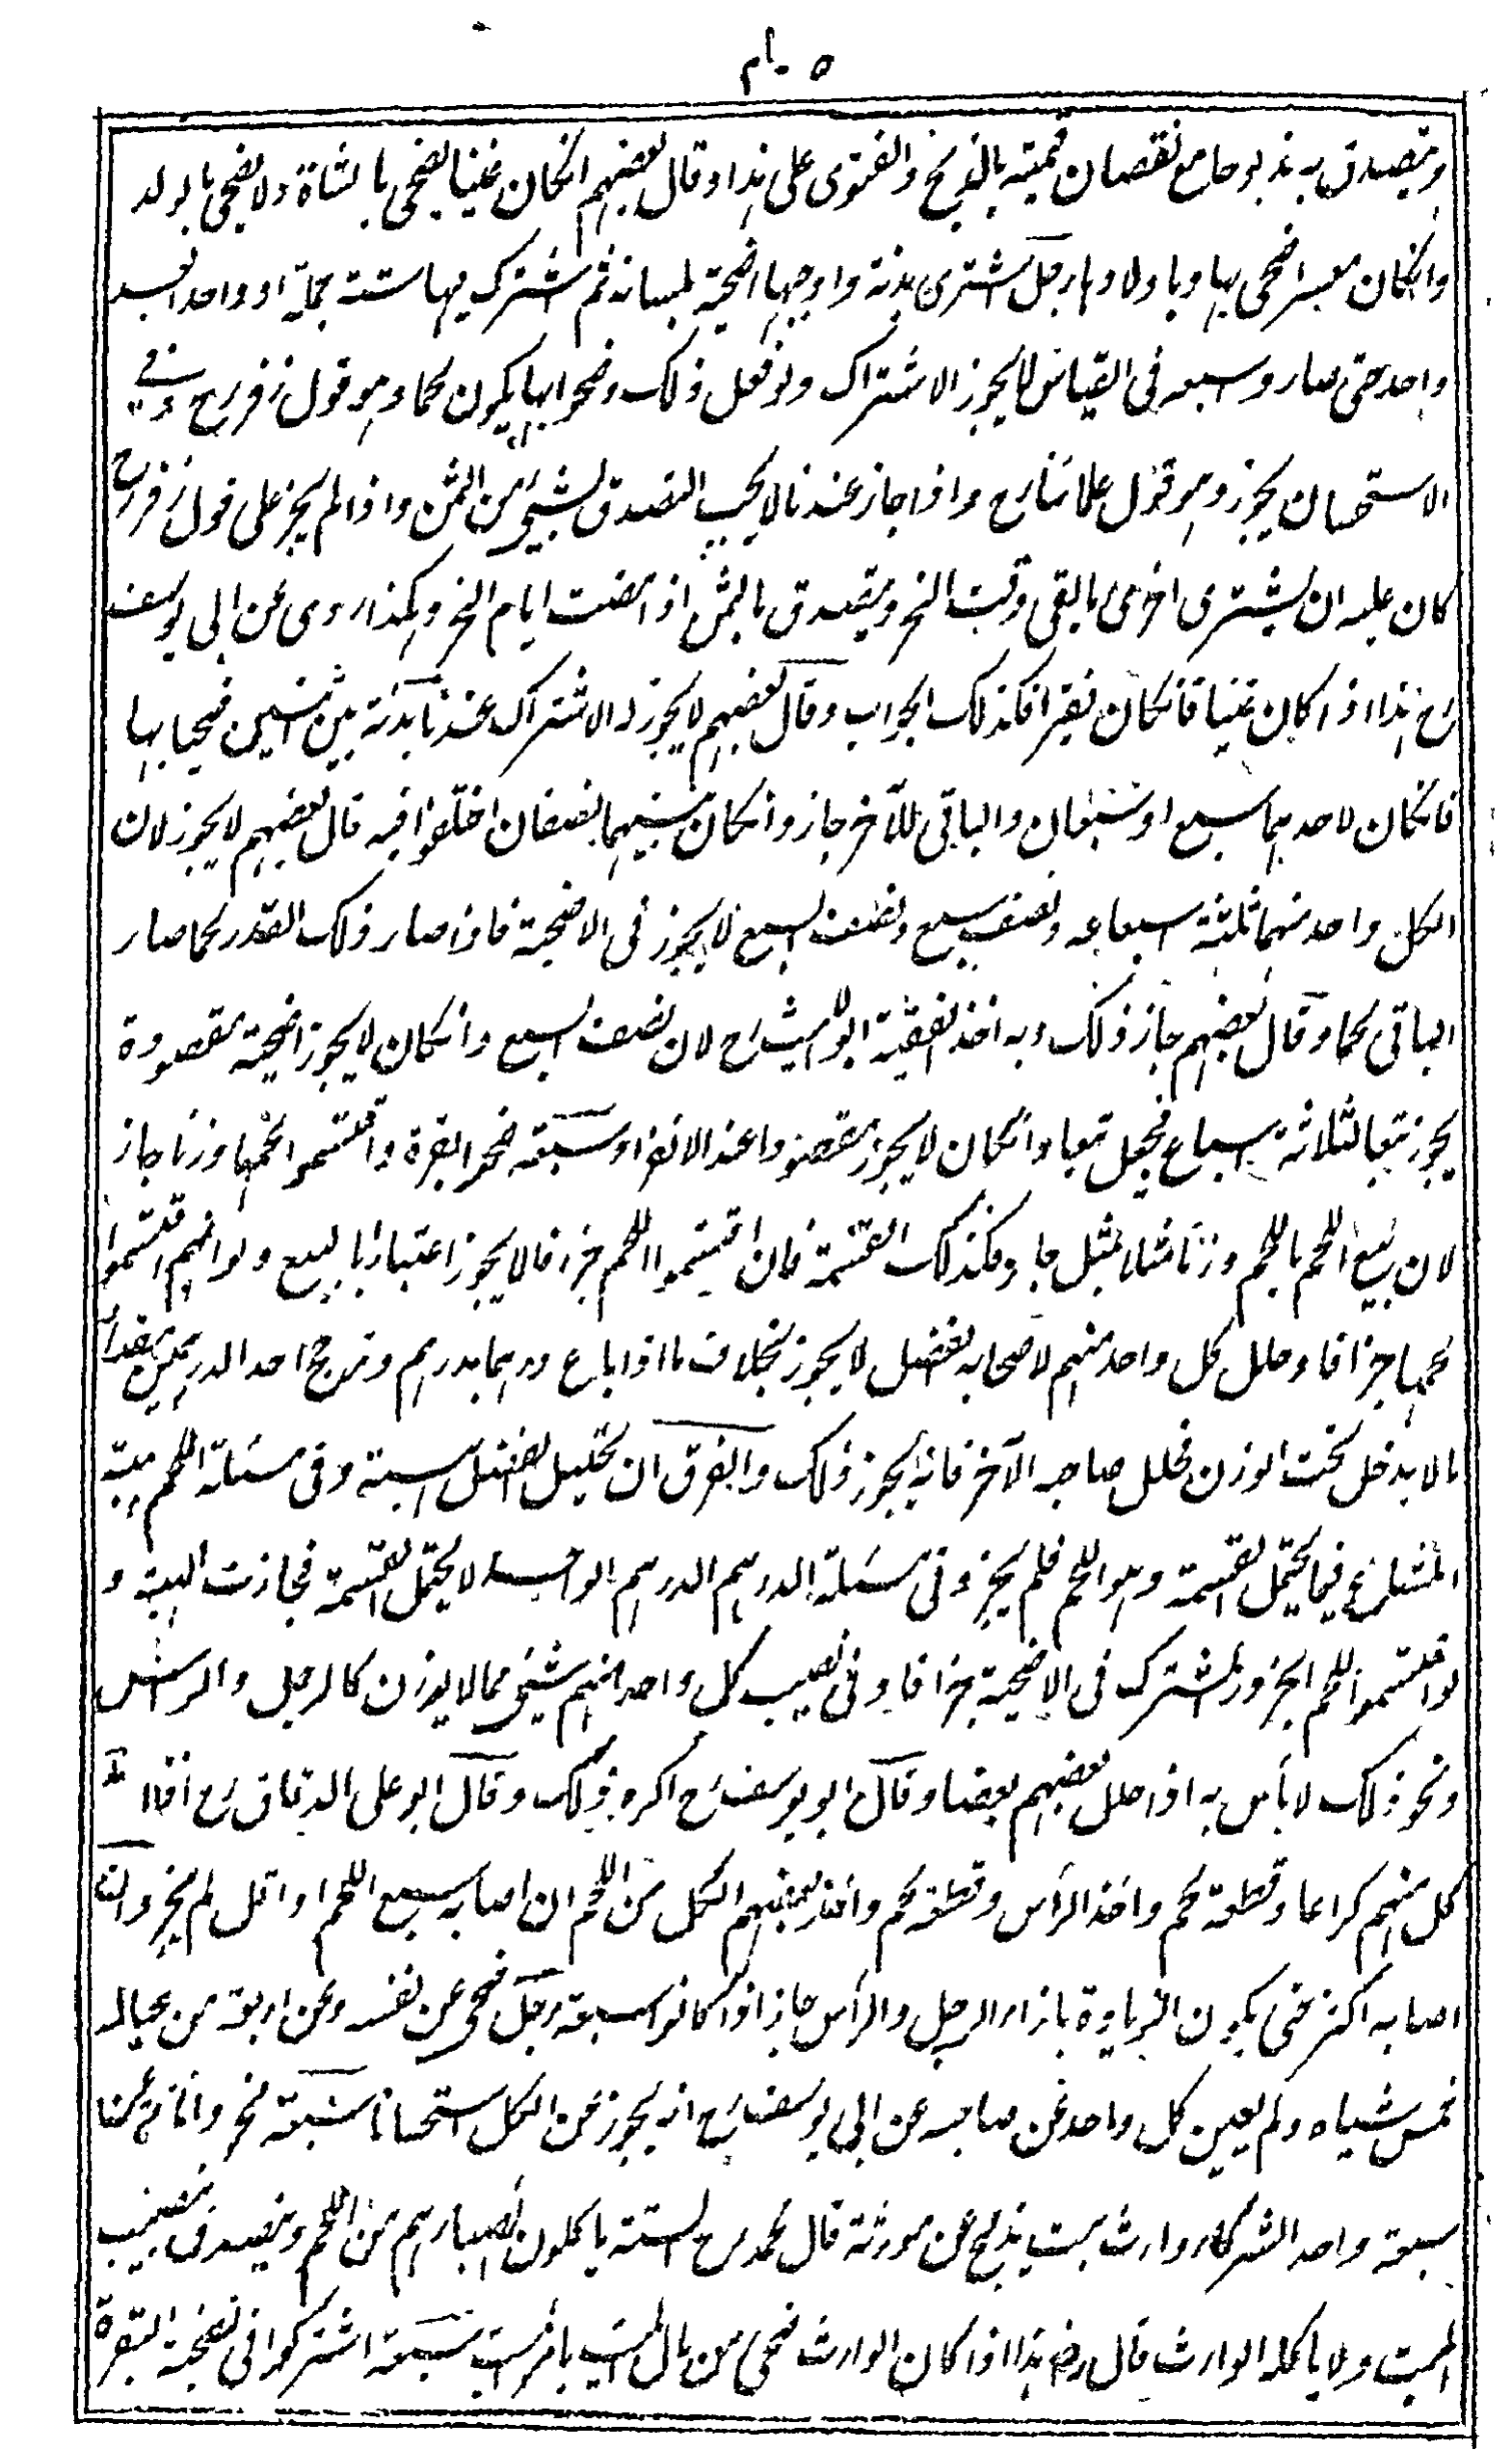 ويتصدق به مذبوحا مع نقصان قيمته بالذبح والفتوى على هذا وقال بعضهم انكان غنيا يضحى بالشاة ولا يضحى بالولد
وانكان معسرا ضحى بها وباولادها رجل اشترى بدنة واوجبها اضحية بلسانه ثم اشترك فيها ستة جملة او واحدا بعد
واحد حتى صاروا سبعة فى القياس لا يجوز الاشتراك ولو فعل ذلك وضحوا بها يكون لحما وهو قول زفر رح وفى
الاستحسان يجوز وهو قول علمائنا رح واذا جاز عندنا لا يجب التصدق بشيئ من الثمن واذا لم يجز على قول زفر رح
كان عليه ان يشترى اخرى ما بقى وقت النحر ويتصدق بالثمن اذا مضت ايام النحر وهكذا روى عن ابى يوسف
رح هذا اذا كان غنيا فانكان فقيرا فكذلك الجواب وقال بعضهم لا يجوز له الاشتراك عندنا بدنة بين اثنين ضحيا بها
فانكان لاحدهما سبع او سبعان والباقى للآخر جاز وانكان بينهما نصفان اختلفوا فيه قال بعضهم لا يجوز لان
لكل واحد منهما ثلثة اسباعه ونصف سبع ونصف السبع لا يجوز فى الاضحية فاذا صار ذلك القدر لحما صار
الباقى لحما وقال بعضهم جاز ذلك وبه اخذ الفقيه ابو الليث رح لان نصف السبع وانكان لا يجوز اضحية مقصودة
يجوز تبعا لثلاثة اسباع فيجعل تبعا وانكان لا يجوز مقصودا عند الانفراد سبعة ضحوا بقرة واقتسموا لحمها وزنا جاز
لان بيع اللحم باللحم وزنا مثلا بمثل جائز فكذلك القسمة فان اقتسموا اللحم جزافا لا يجوز اعتبارا بالبيع ولو انهم اقتسموا
لحمها جزافا وحلل كل واحد منهم لاصحابه بفضل لا يجوز بخلاف ما اذا باع درهما بدرهم وترجح احد الدرهمين بمقدار
مالا يدخل تحت الوزن فحلل صاحبه الآخر فانه يجوز ذلك والفرق ان تحليل الفضل هبة وفى مسئلة اللحم هبة
المشاع فيما يحتمل القسمة وهو اللحم فلم يجز وفى مسئلة الدرهم الدرهم الواحد لا يحتمل القسمة فجازت الهبة و
لو اقتسموا اللحم الجزور المشترك فى الاضحية جزافا وفى نصيب كل واحد منهم شيئ مما لا يوزن كالرجل والراس
ونحو ذلك لا بأس به اذا حلل بعضهم بعضا وقال ابو يوسف رح اكره ذلك وقال ابو على الدقاق رح اذا اخذ
كل منهم كراعا وقطعة لحم واخذ الرأس وقطعة لحم واخذ بعضهم الكل من اللحم ان اصابه سبع اللحم او اقل لم يجز وان
اصابه اكثر حتى يكون الزيادة بازاء الرجل والرأس جاز اذا كانوا سبعة رجل ضحى عن نفسه وعن اربعة من عياله
خمس شياه ولم يعين كل واحد عن صاحبه عن ابى يوسف رح انه يجوز عن الكل استحسانا سبعة نحروا ناقة عن
سبعة واحد الشركاء وارث ميت يذبح عن مورثه قال محمد رح الستة ياكلون انصباءهم من اللحم ويتصدق بنصيب
الميت ولا ياكله الوارث قال رض هذا اذا كان الوارث ضحى من مال الميت بامر الميت سبعة اشتركوا فى تضحية البقرة